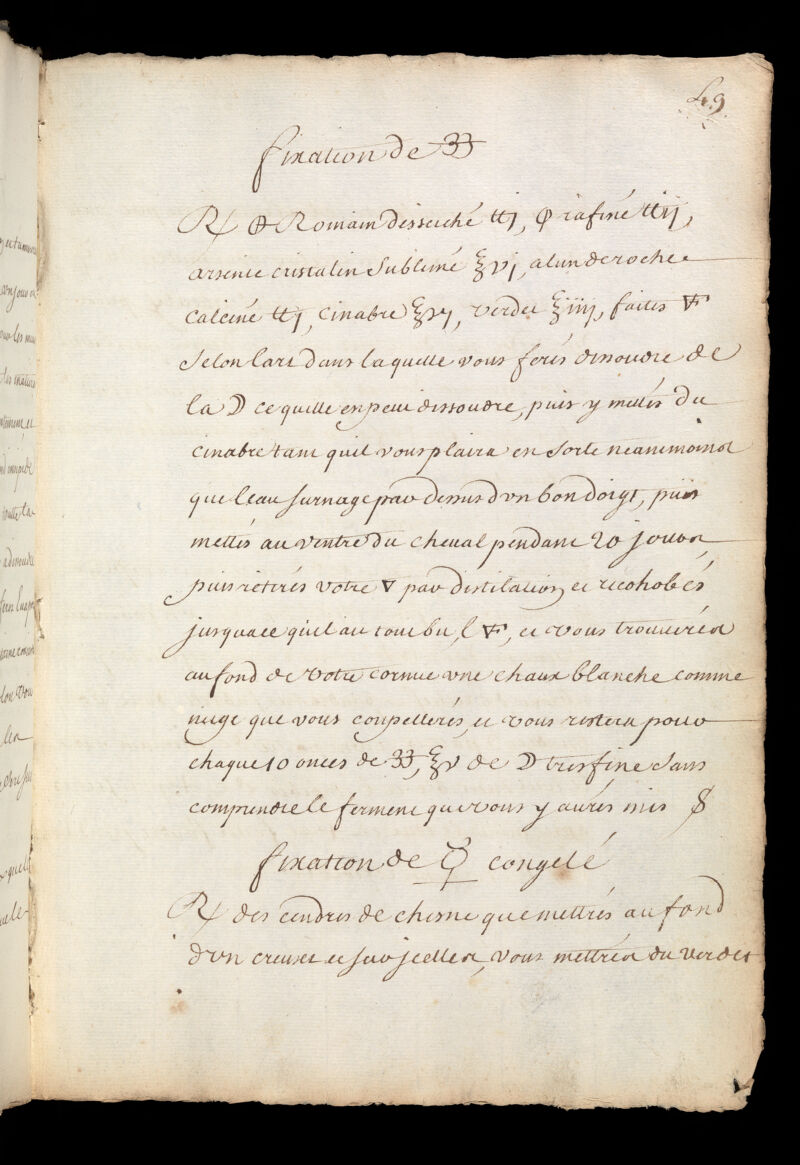 49
fixation de 33
R/ 🜖 Romain desseiché ℔j, 🜕 rafiné ℔ij,
arsenic cristalin sublimé ℥vj, alun de roche
calciné ℔j, cinabre ℥vj, verdet ℥iiij, faites 🜅
selon lart dans laquelle vous ferés dissoudre de
la ☽ ce quelle en peut dissoudre, puis y mettés du
cinabre tant quil vous plaira en sorte neantmoins
que leau surnage par dessus dvn bon doigt, puis
mettés au ventre du cheval pendant 20 jours,
puis retirés votre 🜄 par distilation et recohobés
jusquace quil au tout bu, l 🜅, et vous trouverés
au fond de votre cornue vne chaux blanche comme
neige que vous coupellerés, et vous restera pour
chaque 10 onces de 33, ℥v de ☽ tres fine sans
comprendre le ferment que vous y aurés mis
fixation de ☿ congelé
R/ des cendres de chesne que mettrés au fond
dvn creuset et sur jcelles, vous mettrés du verdet